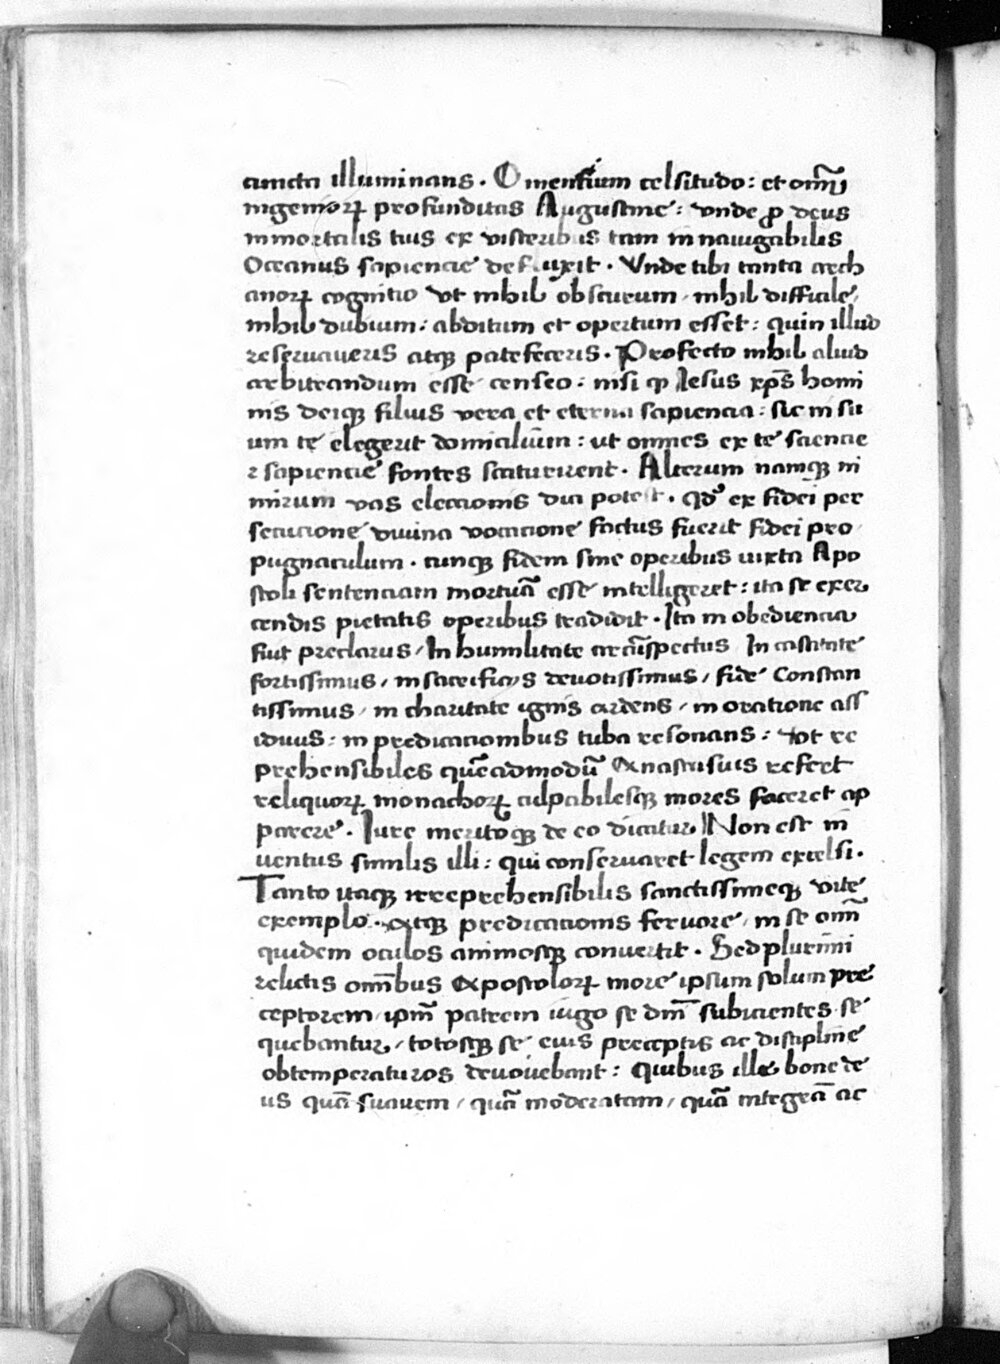 cuncta illuminans. O mentium celsitudo: et om̄i
ingenioꝝ profunditas Augustine: vnde ꝓ deus
inmortalis tuis ex visceribus tam in nauigabilis
Oceanus sapiencie defluxit. Vnde tibi tanta arch
anoꝝ cognitio vt nihil obscurum, nihil difficile,
nihil dubium: abditum et opertum esset: quin illud
reseruaueris atqꝫ patefeceris. Profecto nihil aliud
arbitrandum esse censeo: nisi ꝙ Iesus xp̄s homi
nis deiqꝫ filius vera et eterna sapiencia: sic in su
um te elegerit domicilium: ut omnes ex te sciencie
⁊ sapiencie fontes scaturirent. Alterum namqꝫ ni
mirum vas eleccionis dici potest. qd̓ ex fidei per
secucione diuina vocacione factus fuerit fidei pro
pugnaculum. cunqꝫ fidem sine operibus iuxta Apo
stoli sentenciam mortuā esse intelligeret: ita se exer
cendis pietatis operibus tradidit. Ita in obediencia
fiut preclarus, In humilitate circūspectus In castitate
fortissimus, in sacrificijs deuotissimus, fide Constan
tissimus, in charitate ignis ardens, in oratione ass
iduus: in predicacionibus tuba resonans: Tot re
prehensibiles quēadmodū Ex nascisuis refert
reliquoꝝ monachoꝝ culpabilesqꝫ mores faceret ap
parere. Iure meritoqꝫ de eo dicitur Non est in
uentus similis illi: qui conseruaret legem excelsi.
Tanto itaqꝫ irreprehensibilis sanctissimeqꝫ vite
exemplo. atqꝫ predicacionis feruore, in se om̄
quidem oculos animosqꝫ convertit. Sed plurimi
relictis om̄ibus Apostoloꝝ more ipsum solum pre
ceptorem, ip̄m patrem iugo se dn̄i subicientes se
quebantur, totosqꝫ se eius preceptis ac discipline
obtemperaturos deuouebant: Quibus ille bone de
us quā suauem, quā moderatam, quā integrā ac